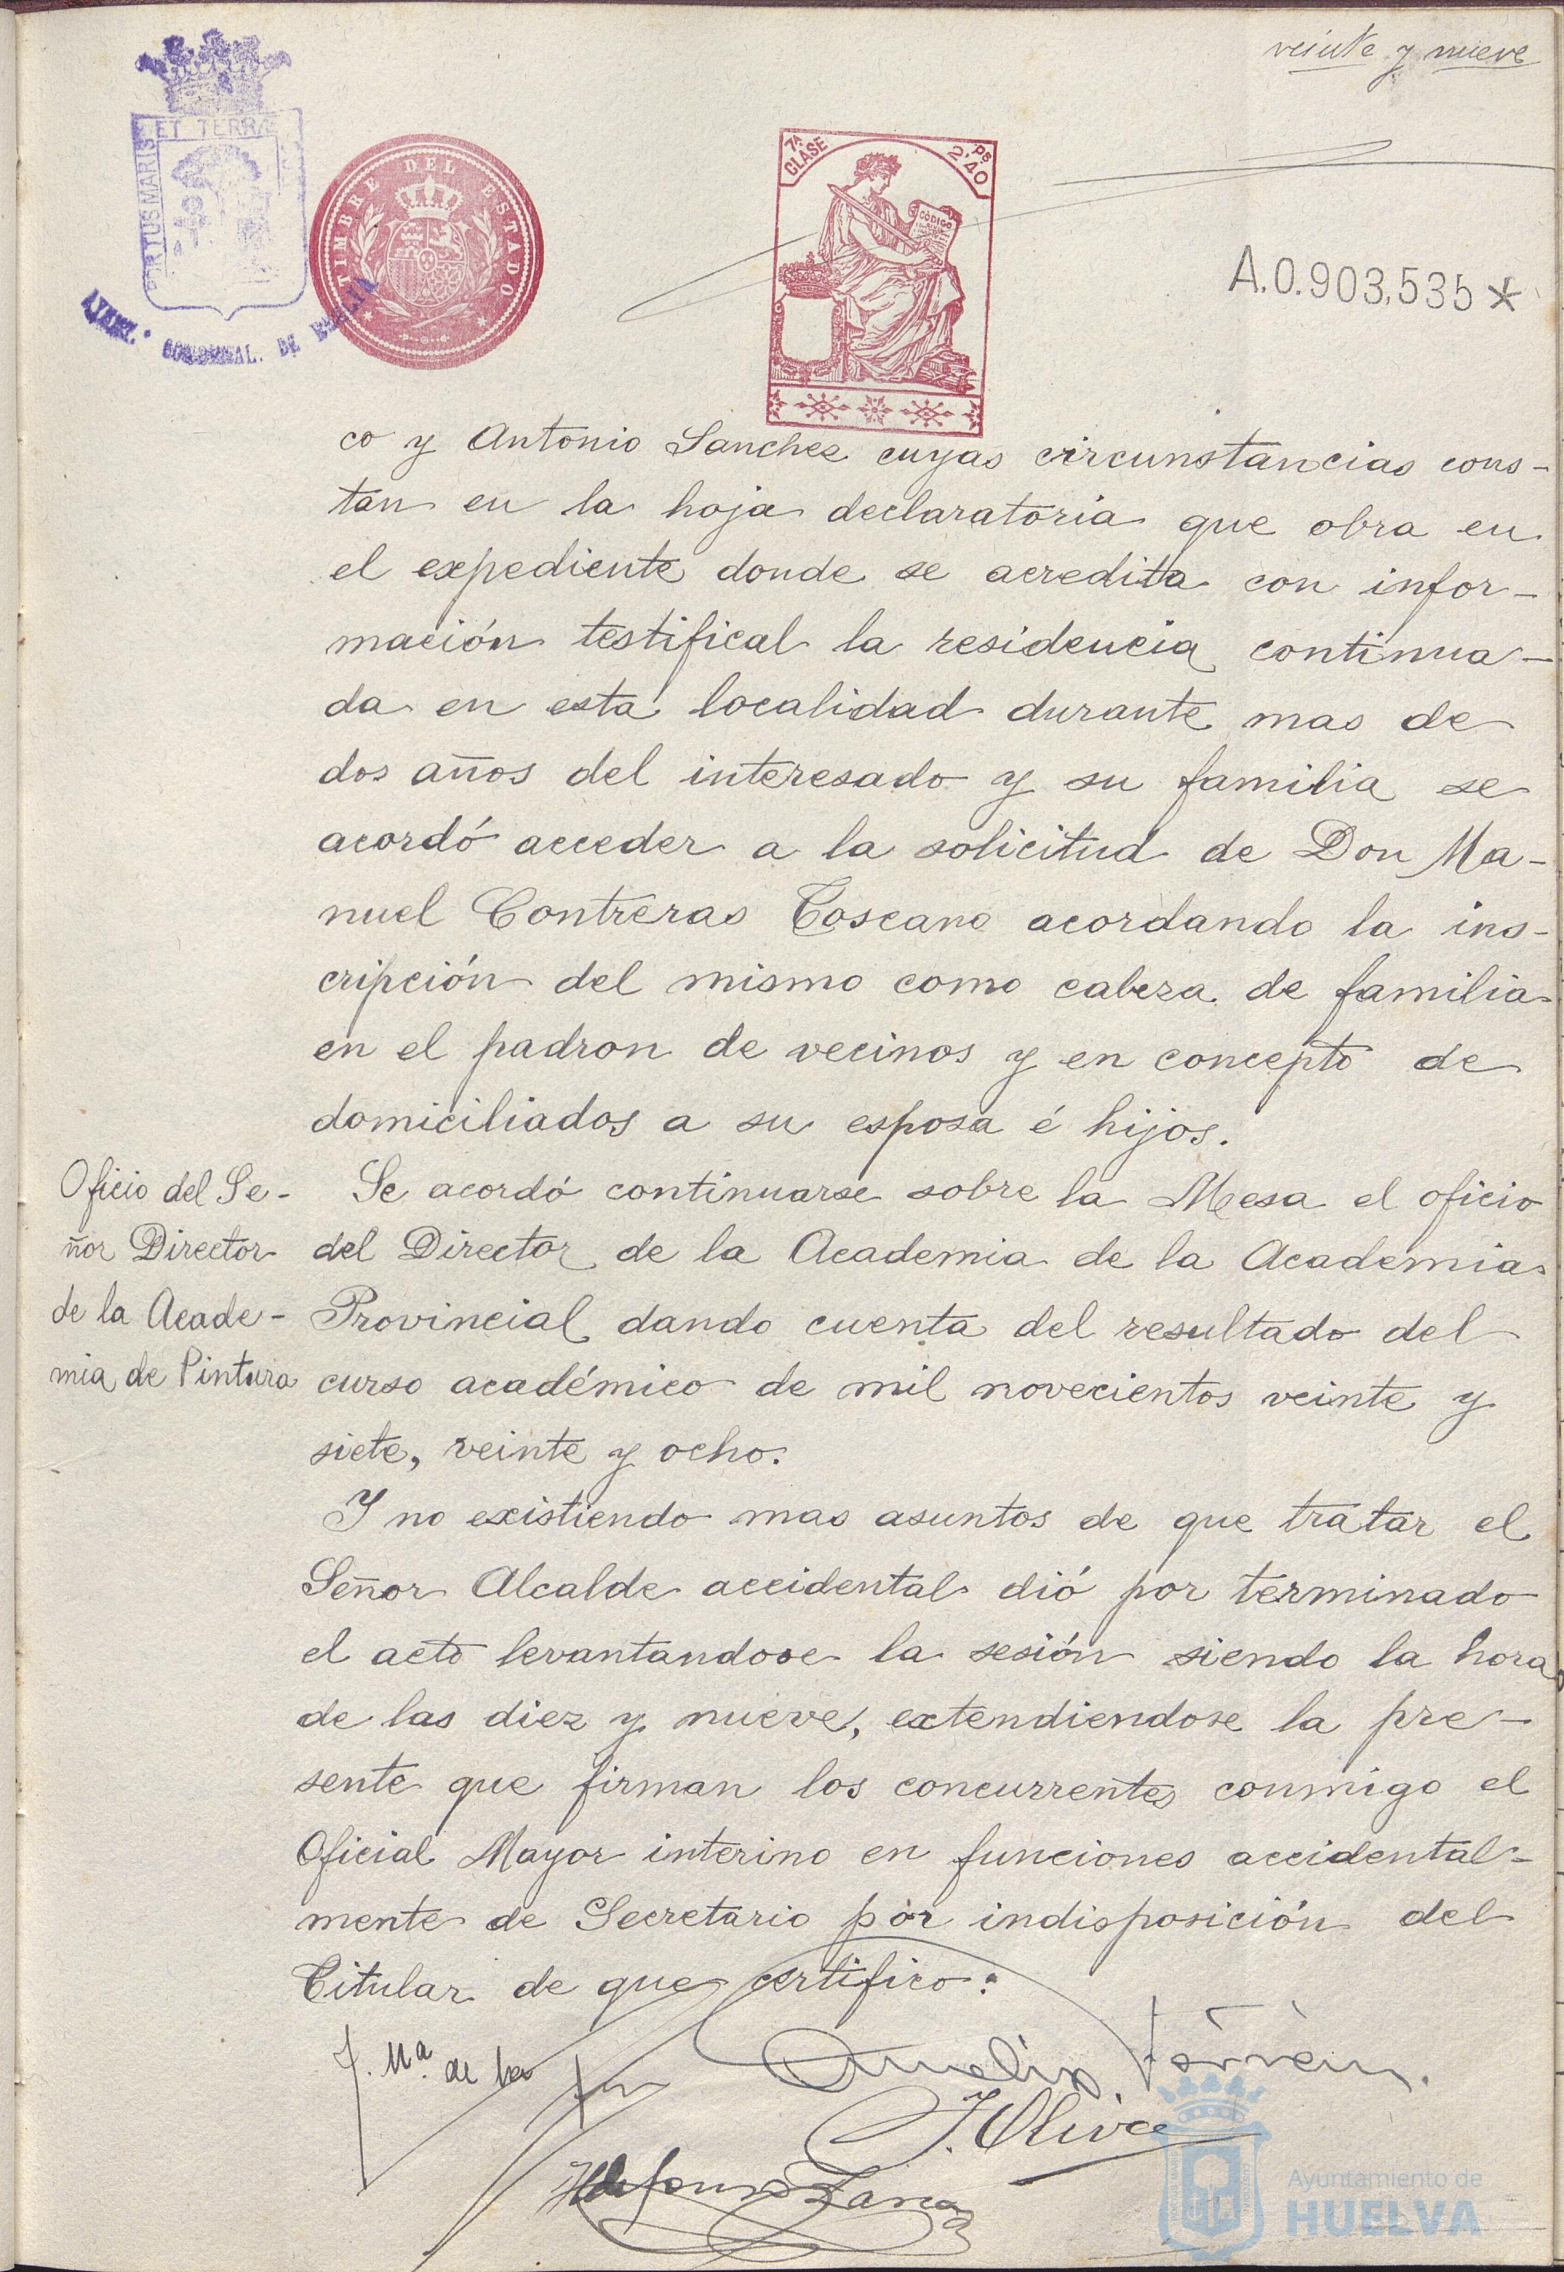 veinte y nueve
PORTUS MARIS ET TERRÆ
TIMBRE DEL ESTADO
7ª CLASE
2'40 ps
CÓDIGO
A.0.903,535*
AYUNT.º DE HUELVA
co y Antonio Sanchez cuyas circunstancias cons-
tan en la hoja declaratoria que obra en
el expediente donde se acredita con infor-
mación testifical la residencia continua-
da en esta localidad durante mas de
dos años del interesado y su familia se
acordó acceder a la solicitud de Don Ma-
nuel Contreras Toscano acordando la ins-
cripción del mismo como cabeza de familia
en el padron de vecinos y en concepto de
domiciliados a su esposa é hijos.
Oficio del Se-
ñor Director
de la Acade-
mia de Pintura
Se acordó continuarse sobre la Mesa el oficio
del Director de la Academia de la Academia
Provincial dando cuenta del resultado del
curso académico de mil novecientos veinte y
siete, veinte y ocho.
Y no existiendo mas asuntos de que tratar el
Señor Alcalde accidental dió por terminado
el acto levantandose la sesión siendo la hora
de las diez y nueve, extendiendose la pre-
sente que firman los concurrentes conmigo el
Oficial Mayor interino en funciones accidental-
mente de Secretario por indisposición del
Titular de que certifico:
J. Mª de la
J. Oliva
Ildefonso
Ayuntamiento de
HUELVA